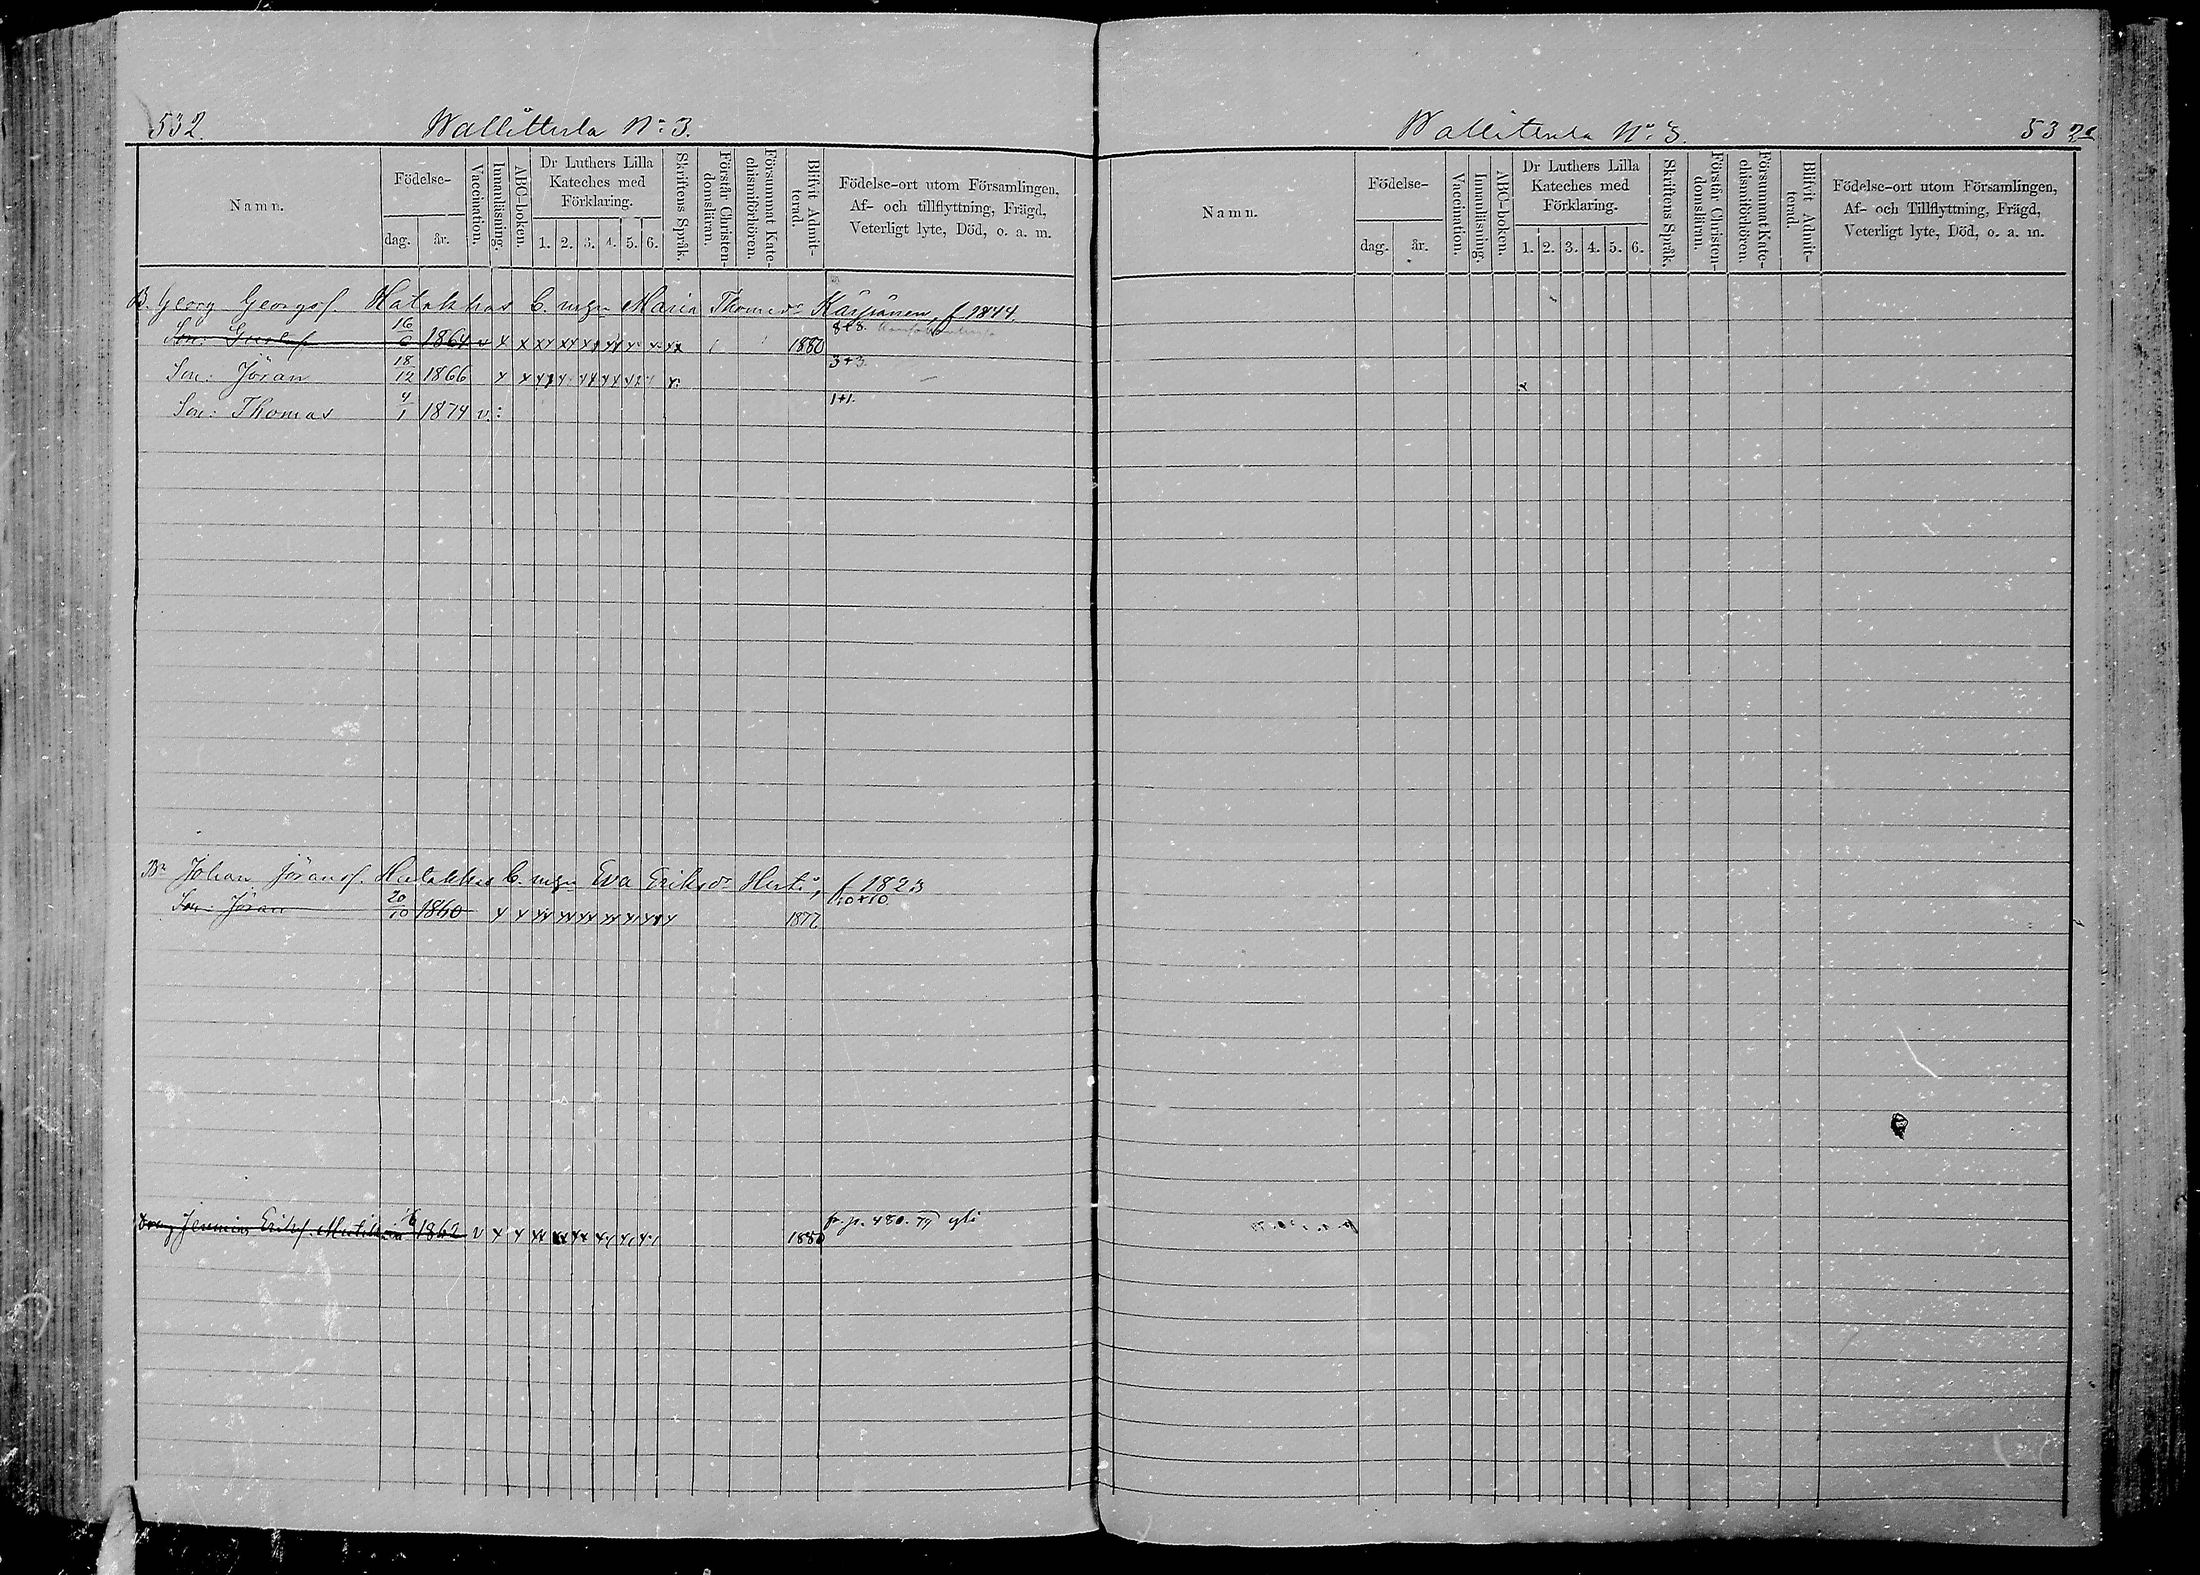 532. Wallittula N:o 3.
Namn. Födelse- dag. år. Vaccination. Innanläsning. ABC-boken. Dr Luthers Lilla Kateches med Förklaring. 1. 2. 3. 4. 5. 6. Skriftens Språk. Förstår Christendomsläran. Försummat Katechismiförhören. Blifvit Admitterad. Födelse-ort utom Församlingen, Af- och tillflyttning, Frägd, Veterligt lyte, Död, o. a. m.
B. Georg Georgsf. Hatakkas C. m. gn Maria Thomasdr f 1844.
8+8.
Son: Gustaf 16/6 1864 v x x xx xx xx xx x x xx 1880
3+3.
Son: Jöran 18/12 1866 x x
1+1.
Son: Thomas 4/1 1874 v:
Bn Johan Jöransf. Hatakkas C. m. gn Eva Eriksdr f 1823
10+10
Son: Jöran 20/10 1860 x x xx xx xx xx x xx x 1877
fr. p. 480.
Jeremias Eriksf. 1862 v x x xx xx xx 1880
Wallittula N:o 3. 532
Namn. Födelse- dag. år. Vaccination. Innanläsning. ABC-boken. Dr Luthers Lilla Kateches med Förklaring. 1. 2. 3. 4. 5. 6. Skriftens Språk. Förstår Christendomsläran. Försummat Katechismiförhören. Blifvit Admitterad. Födelse-ort utom Församlingen, Af- och Tillflyttning, Frägd, Veterligt lyte, Död, o. a. m.